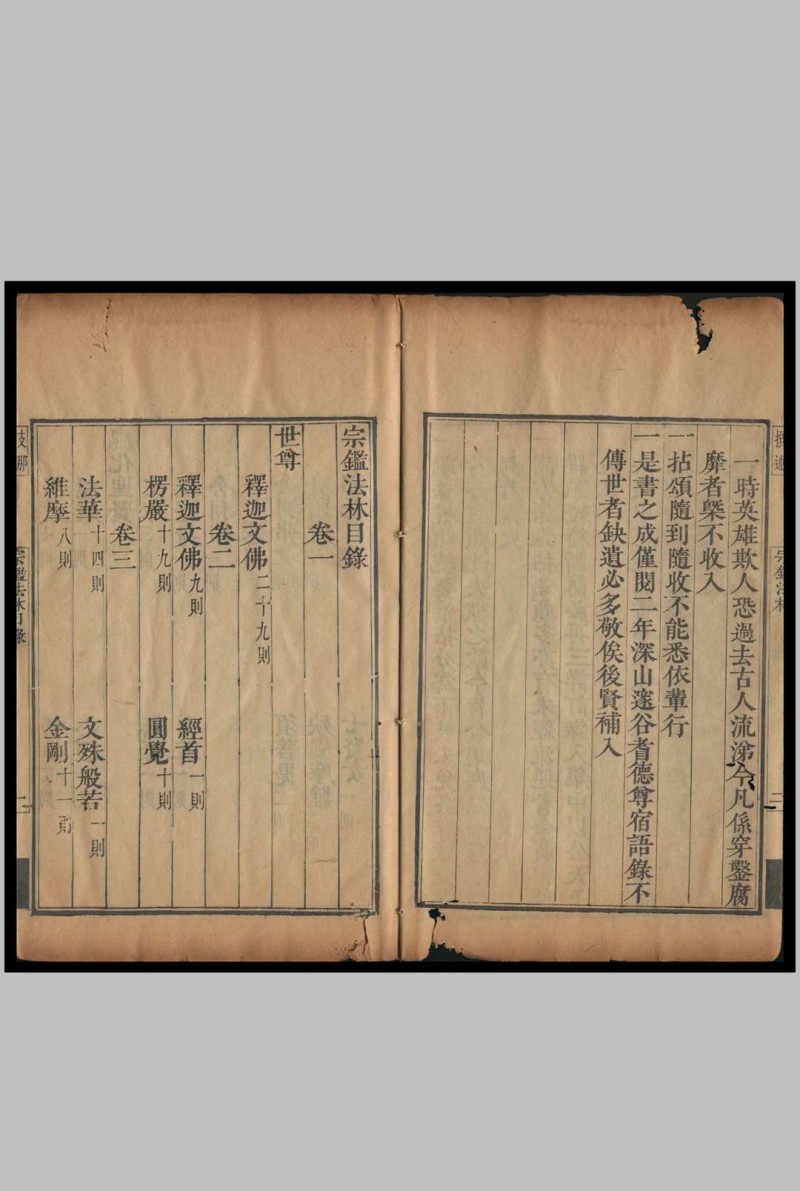 一時英雄欺人恐過去古人流涕今凡係穿鑿腐
靡者槩不收入
一拈頌隨到隨收不能悉依輩行
一是書之成僅閱二年深山邃谷耆德尊宿語錄不
傳世者缺遺必多敬俟後賢補入
宗鑑法林目錄
卷一
世尊
釋迦文佛二十九則
卷二
釋迦文佛九則 經首一則
楞嚴十九則 圓覺十則
卷三
法華十四則 文殊般若一則
維摩八則 金剛十一則
宗鑑法林目錄